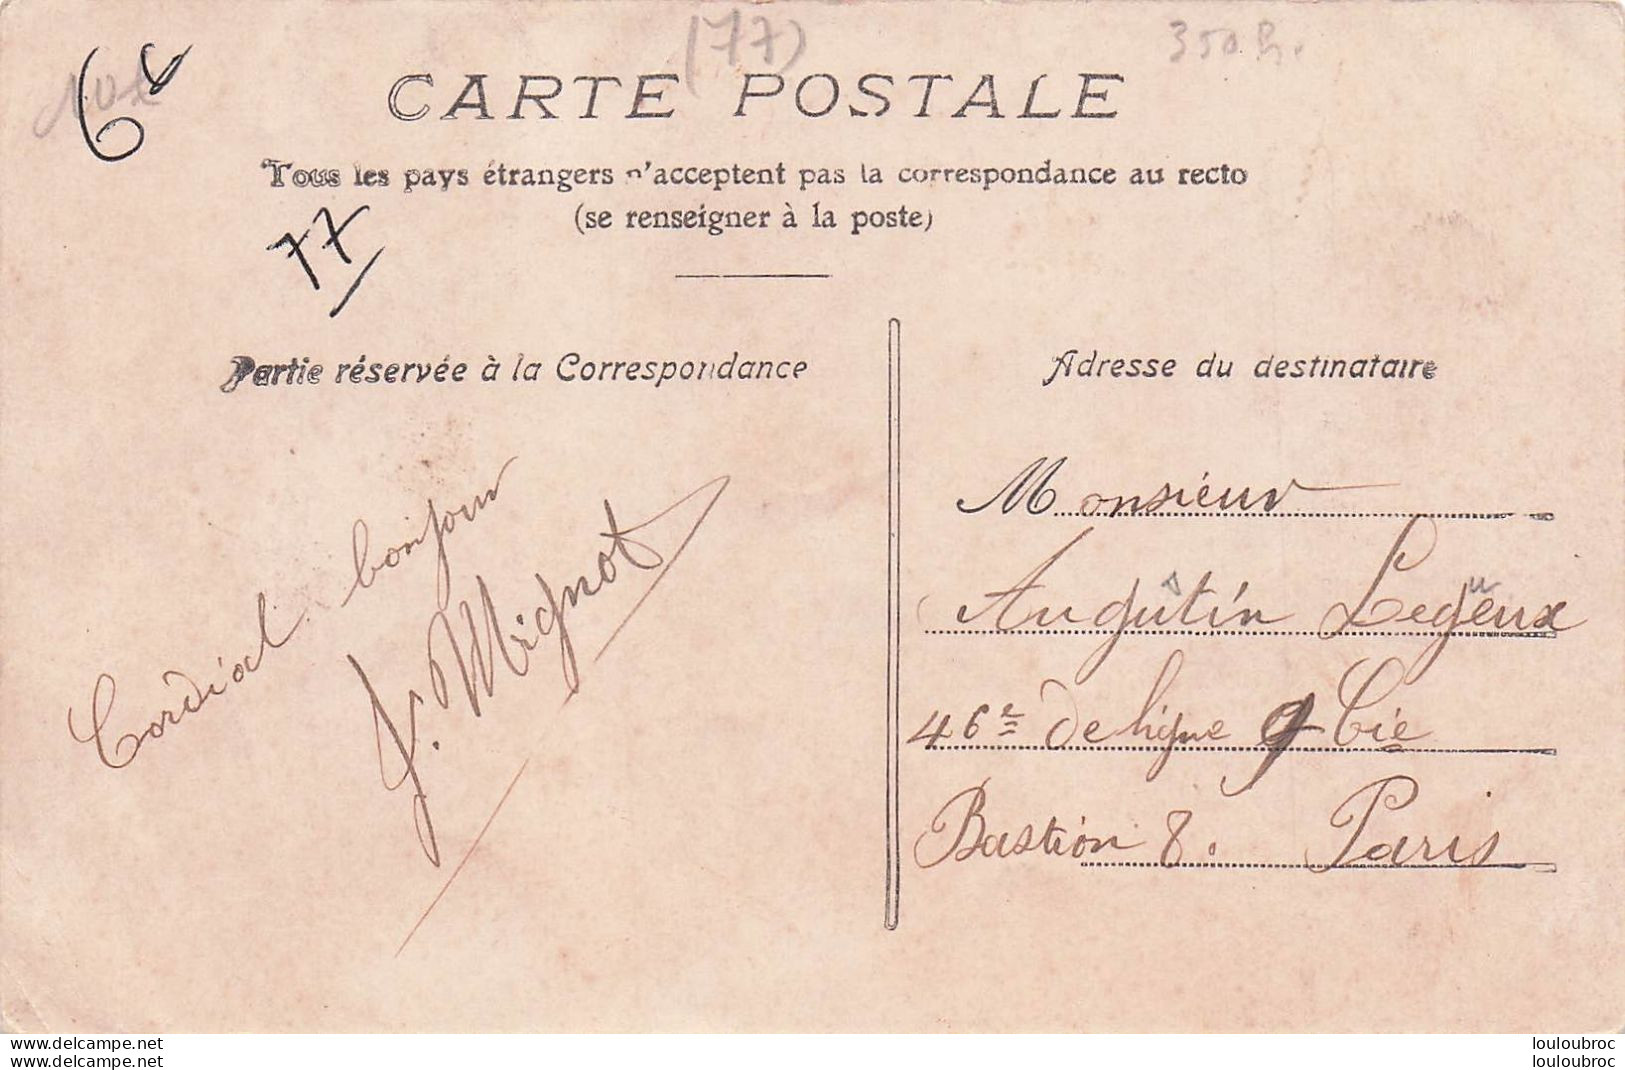 (77)
350 
6€
CARTE POSTALE
Tous les pays étrangers n'acceptent pas la correspondance au recto
(se renseigner à la poste)
77
Partie réservée à la Correspondance
Cordial bonjour
J. Mignot
Adresse du destinataire
Monsieur
Augutin Legeux
46e de ligne 9 Cie
Bastion 8. Paris
delcampe.net
delcampe.net
louloubroc
louloubroc